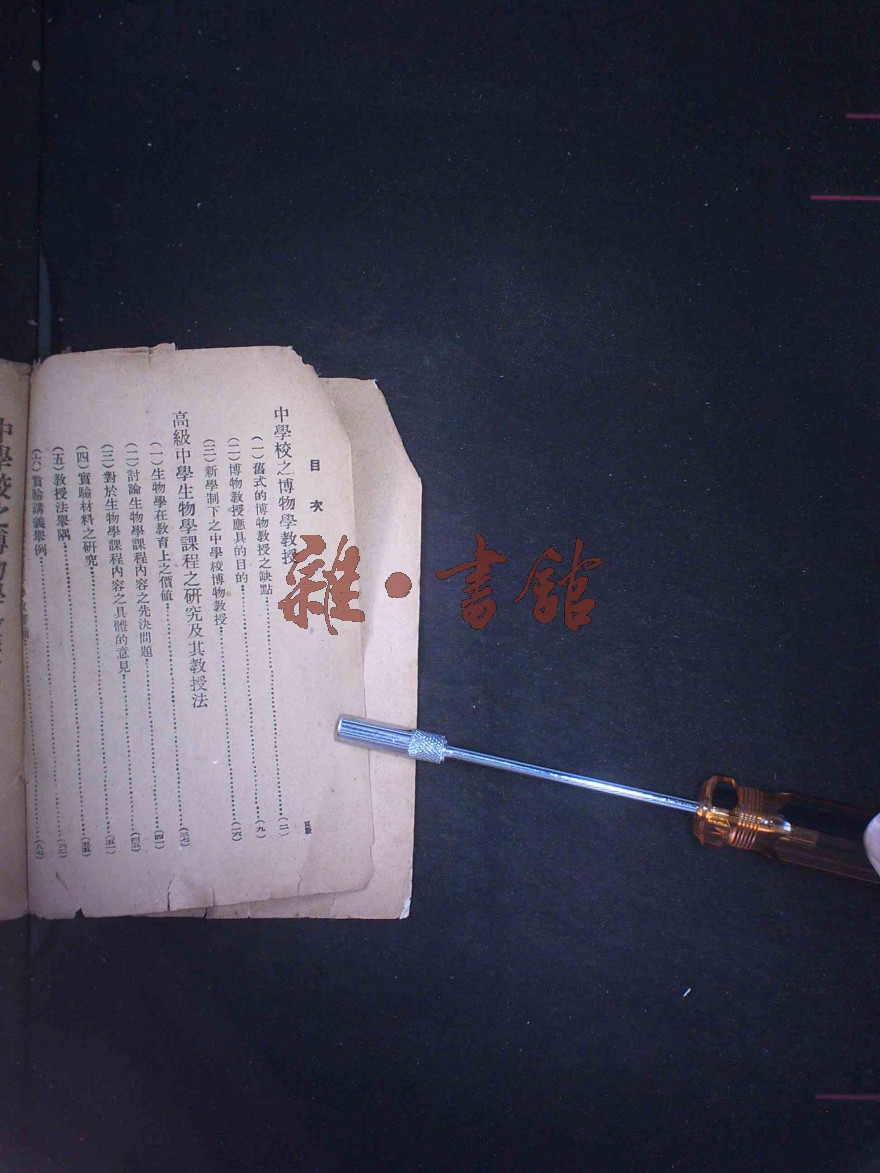 目次
頁數
中學校之博物學教授
(一)舊式的博物教授之缺點……(二)
(二)博物教授應具的目的……(九)
(三)新學制下之中學校博物教授……(一六)
高級中學生物學課程之研究及其教授法
(一)生物學在教育上之價値……(四一)
(二)討論生物學課程內容之先決問題
(三)對於生物學課程內容之具體的意見……(五一)
(四)實驗材料之研究
(五)教授法舉隅
(六)實驗講義舉例
中學校之博物學
雜·書館